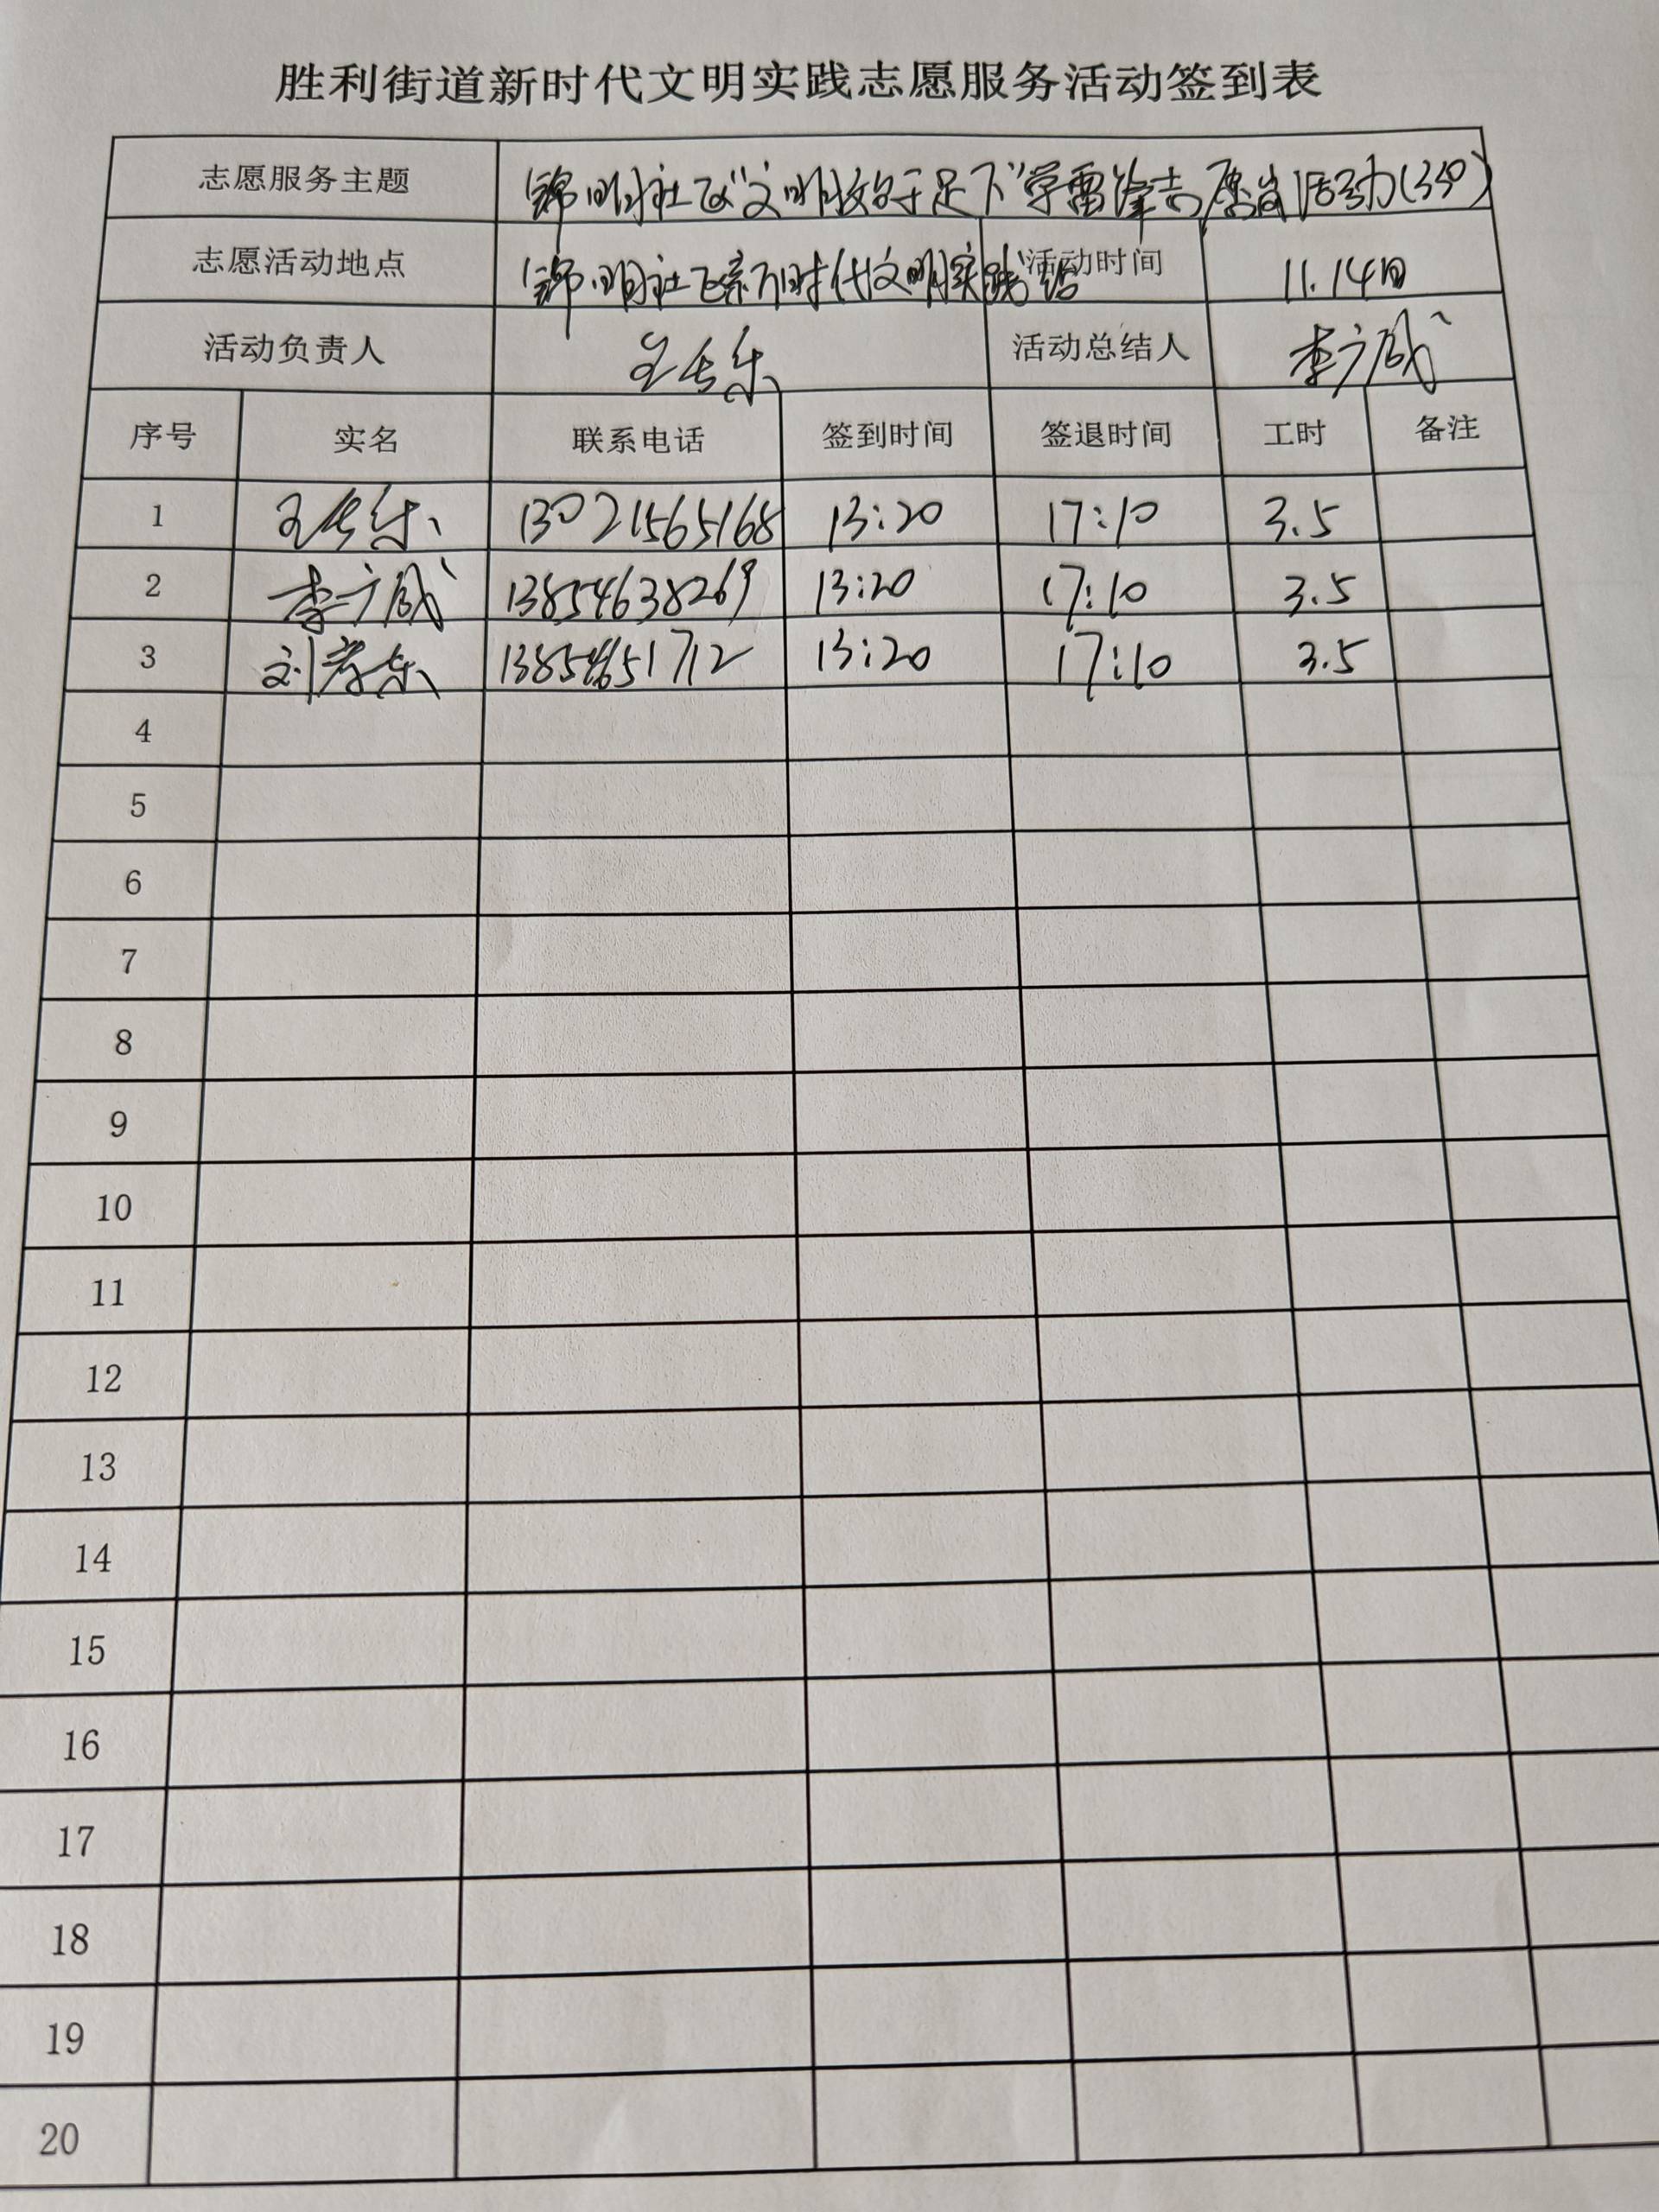 胜利街道新时代文明实践志愿服务活动签到表
志愿服务主题 锦明社区“文明始于足下”学雷锋志愿岗活动(350)
志愿活动地点 锦明社区新时代文明实践站 活动时间 11.14日
活动负责人 活动总结人 李广成
序号 实名 联系电话 签到时间 签退时间 工时 备注
1 13021565168 13:20 17:10 3.5
2 李广成 13854638269 13:20 17:10 3.5
3 13854651712 13:20 17:10 3.5
4
5
6
7
8
9
10
11
12
13
14
15
16
17
18
19
20